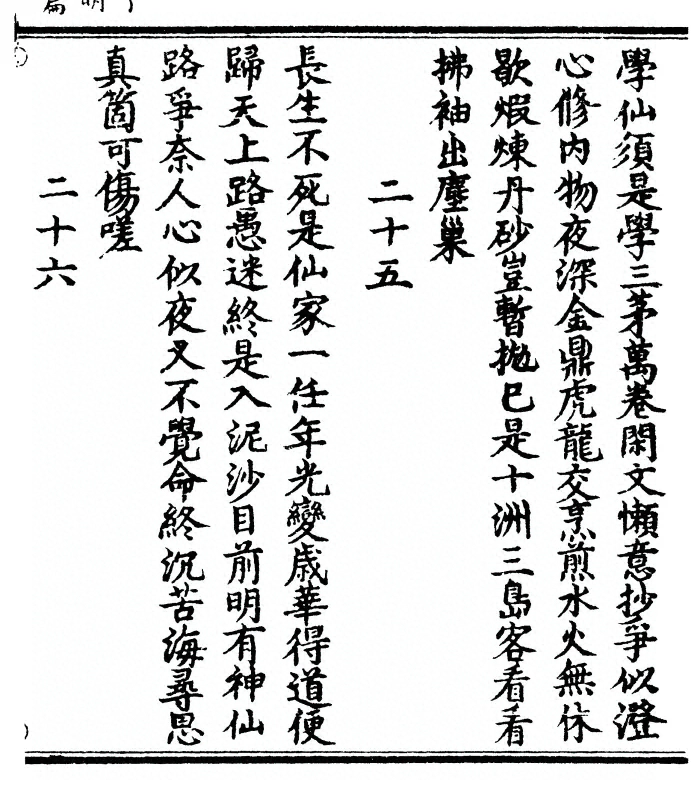 學仙須是學三茅萬卷閑文懶意抄爭似澄
心修内物夜深金鼎虎龍交烹煎水火無休
歇煆煉丹砂豈暫抛已是十洲三島客看看
拂袖出塵巢
二十五
長生不死是仙家一任年光變歲華得道便
歸天上路愚迷終是入泥沙目前明有神仙
路爭奈人心似夜叉不覺命終沉苦海尋思
真箇可傷嗟
二十六